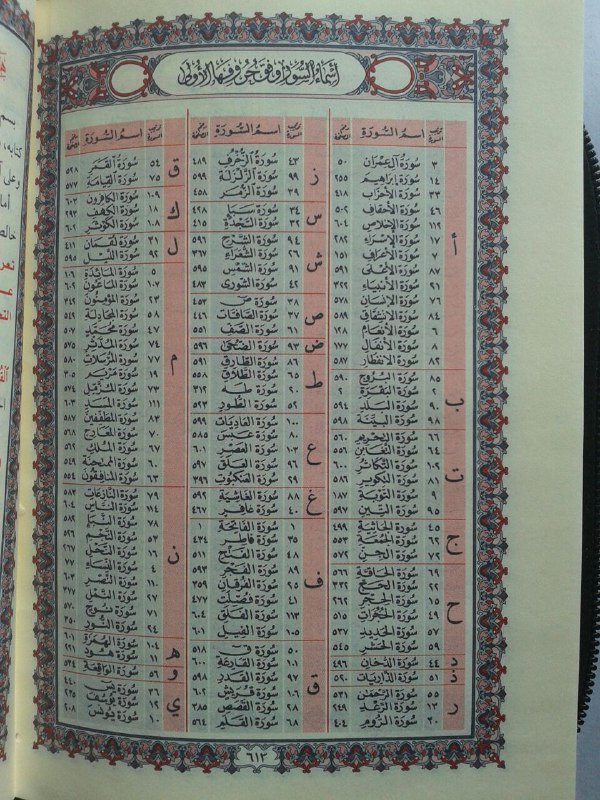 أسماء السور وفق حروفها الأولى
ترتيب السورة اسم السورة رقم الصفحة
أ
٣ سورة آل عمران ٥٠
١٤ سورة إبراهيم ٢٥٥
٣٣ سورة الأحزاب ٤١٨
٤٦ سورة الأحقاف ٥٠٢
١١٢ سورة الإخلاص ٦٠٤
١٧ سورة الإسراء ٢٨٢
٧ سورة الأعراف ١٥١
٨٧ سورة الأعلى ٥٩١
٢١ سورة الأنبياء ٣٢٢
٧٦ سورة الإنسان ٥٧٨
٨٤ سورة الانشقاق ٥٨٩
٦ سورة الأنعام ١٢٨
٨ سورة الأنفال ١٧٧
٨٢ سورة الانفطار ٥٨٧
ب
٨٥ سورة البروج ٥٩٠
٢ سورة البقرة ٢
٩٠ سورة البلد ٥٩٤
٩٨ سورة البينة ٥٩٨
ت
٦٦ سورة التحريم ٥٦٠
٦٤ سورة التغابن ٥٥٦
١٠٢ سورة التكاثر ٦٠٠
٨١ سورة التكوير ٥٨٦
٩ سورة التوبة ١٨٧
٩٥ سورة التين ٥٩٧
ج
٤٥ سورة الجاثية ٤٩٩
٦٢ سورة الجمعة ٥٥٣
٧٢ سورة الجن ٥٧٢
ح
٦٩ سورة الحاقة ٥٦٦
٢٢ سورة الحج ٣٣٢
١٥ سورة الحجر ٢٦٢
٤٩ سورة الحجرات ٥١٥
٥٧ سورة الحديد ٥٣٧
٥٩ سورة الحشر ٥٤٥
د
٤٤ سورة الدخان ٤٩٦
ذ
٥١ سورة الذاريات ٥٢٠
ر
٥٥ سورة الرحمن ٥٣١
١٣ سورة الرعد ٢٤٩
٣٠ سورة الروم ٤٠٤
ترتيب السورة اسم السورة رقم الصفحة
ز
٤٣ سورة الزخرف ٤٨٩
٩٩ سورة الزلزلة ٥٩٩
٣٩ سورة الزمر ٤٥٨
س
٣٤ سورة سبأ ٤٢٨
٣٢ سورة السجدة ٤١٥
ش
٩٤ سورة الشرح ٥٩٦
٢٦ سورة الشعراء ٣٦٧
٩١ سورة الشمس ٥٩٥
٤٢ سورة الشورى ٤٨٣
ص
٣٨ سورة ص ٤٥٣
٣٧ سورة الصافات ٤٤٦
٦١ سورة الصف ٥٥١
ض
٩٣ سورة الضحى ٥٩٦
ط
٨٦ سورة الطارق ٥٩١
٦٥ سورة الطلاق ٥٥٨
٢٠ سورة طه ٣١٢
٥٢ سورة الطور ٥٢٣
ع
١٠٠ سورة العاديات ٥٩٩
٨٠ سورة عبس ٥٨٥
١٠٣ سورة العصر ٦٠١
٩٦ سورة العلق ٥٩٧
٢٩ سورة العنكبوت ٣٩٦
غ
٨٨ سورة الغاشية ٥٩٢
٤٠ سورة غافر ٤٦٧
ف
١ سورة الفاتحة ١
٣٥ سورة فاطر ٤٣٤
٤٨ سورة الفتح ٥١١
٨٩ سورة الفجر ٥٩٣
٢٥ سورة الفرقان ٣٥٩
٤١ سورة فصلت ٤٧٧
١١٣ سورة الفلق ٦٠٤
١٠٥ سورة الفيل ٦٠١
ق
٥٠ سورة ق ٥١٨
١٠١ سورة القارعة ٦٠٠
٩٧ سورة القدر ٥٩٨
١٠٦ سورة قريش ٦٠٢
٢٨ سورة القصص ٣٨٥
٦٨ سورة القلم ٥٦٤
ترتيب السورة اسم السورة رقم الصفحة
ق
٥٤ سورة القمر ٥٢٨
٧٥ سورة القيامة ٥٧٧
ك
١٠٩ سورة الكافرون ٦٠٣
١٨ سورة الكهف ٢٩٣
١٠٨ سورة الكوثر ٦٠٢
ل
٣١ سورة لقمان ٤١١
٩٢ سورة الليل ٥٩٥
م
٥ سورة المائدة ١٠٦
١٠٧ سورة الماعون ٦٠٢
٢٣ سورة المؤمنون ٣٤٢
٥٨ سورة المجادلة ٥٤٢
٤٧ سورة محمد ٥٠٧
٧٤ سورة المدثر ٥٧٥
٧٧ سورة المرسلات ٥٨٠
١٩ سورة مريم ٣٠٥
٧٣ سورة المزمل ٥٧٤
١١١ سورة المسد ٦٠٣
٨٣ سورة المطففين ٥٨٧
٧٠ سورة المعارج ٥٦٨
٦٧ سورة الملك ٥٦٢
٦٠ سورة الممتحنة ٥٤٩
٦٣ سورة المنافقون ٥٥٤
ن
٧٩ سورة النازعات ٥٨٣
١١٤ سورة الناس ٦٠٤
٧٨ سورة النبأ ٥٨٢
٥٣ سورة النجم ٥٢٦
١٦ سورة النحل ٢٦٧
٤ سورة النساء ٧٧
١١٠ سورة النصر ٦٠٣
٢٧ سورة النمل ٣٧٧
٧١ سورة نوح ٥٧٠
٢٤ سورة النور ٣٥٠
ه
١٠٤ سورة الهمزة ٦٠١
١١ سورة هود ٢٢١
و
٥٦ سورة الواقعة ٥٣٤
ي
٣٦ سورة يس ٤٤٠
١٢ سورة يوسف ٢٣٥
١٠ سورة يونس ٢٠٨
٦١٢